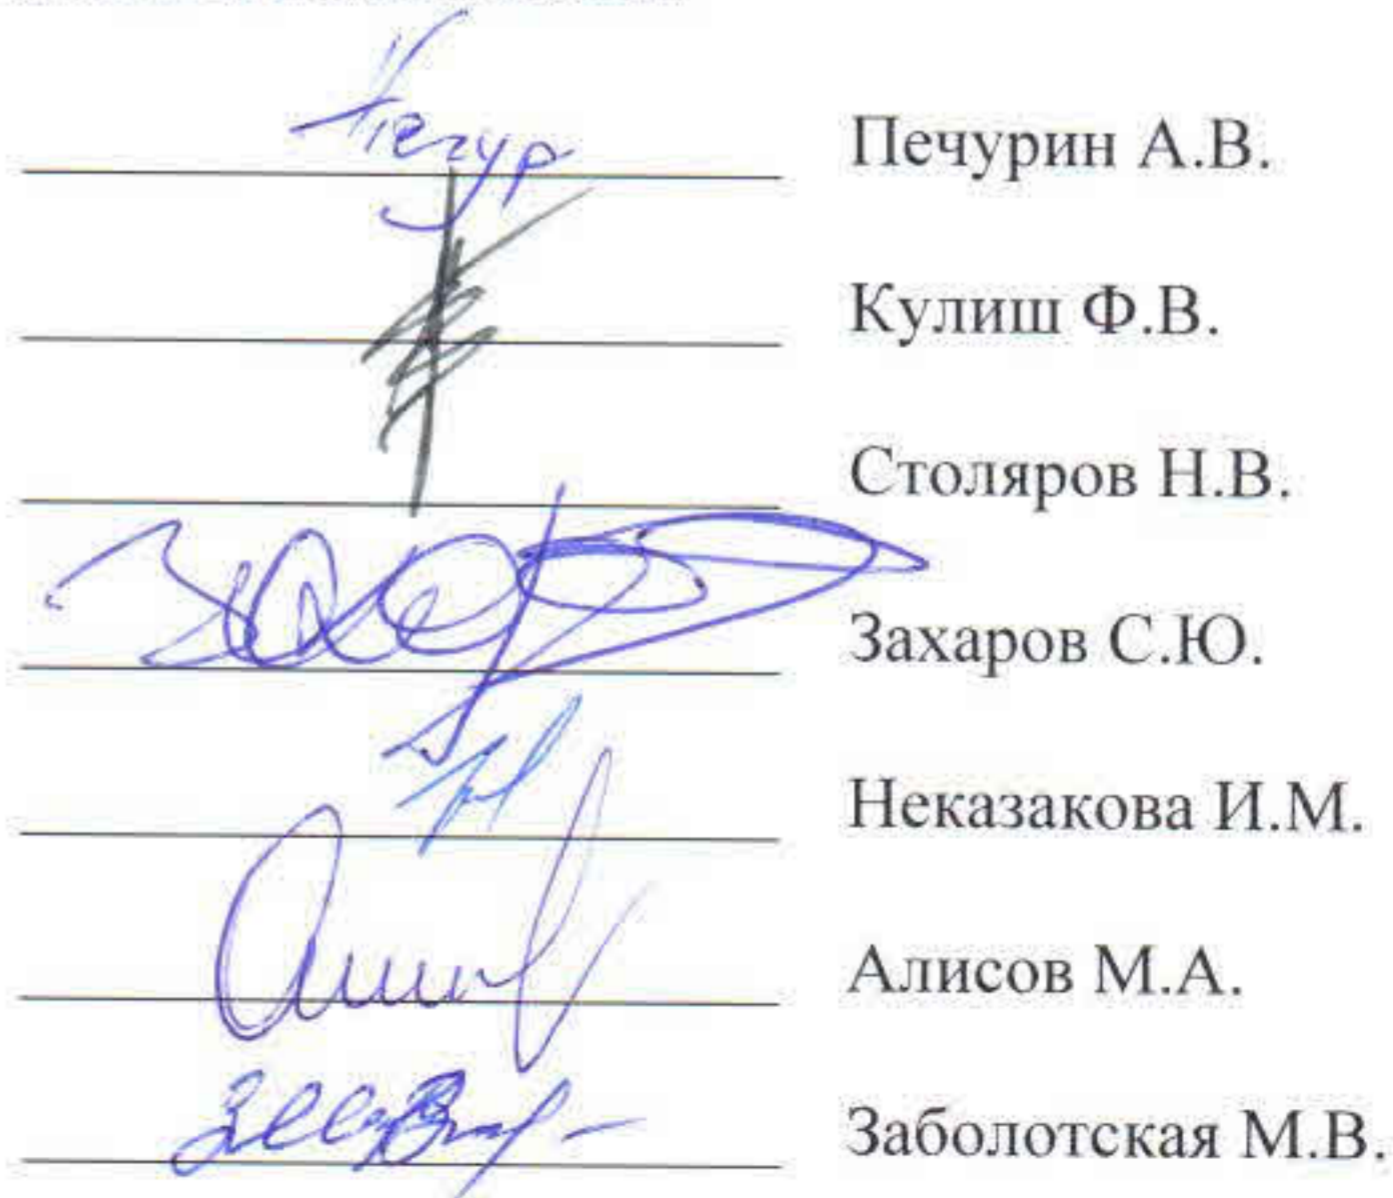 Печур Печурин А.В.
Кулиш Ф.В.
Столяров Н.В.
Захаров С.Ю.
Неказакова И.М.
Алисов М.А.
Заболотская М.В.